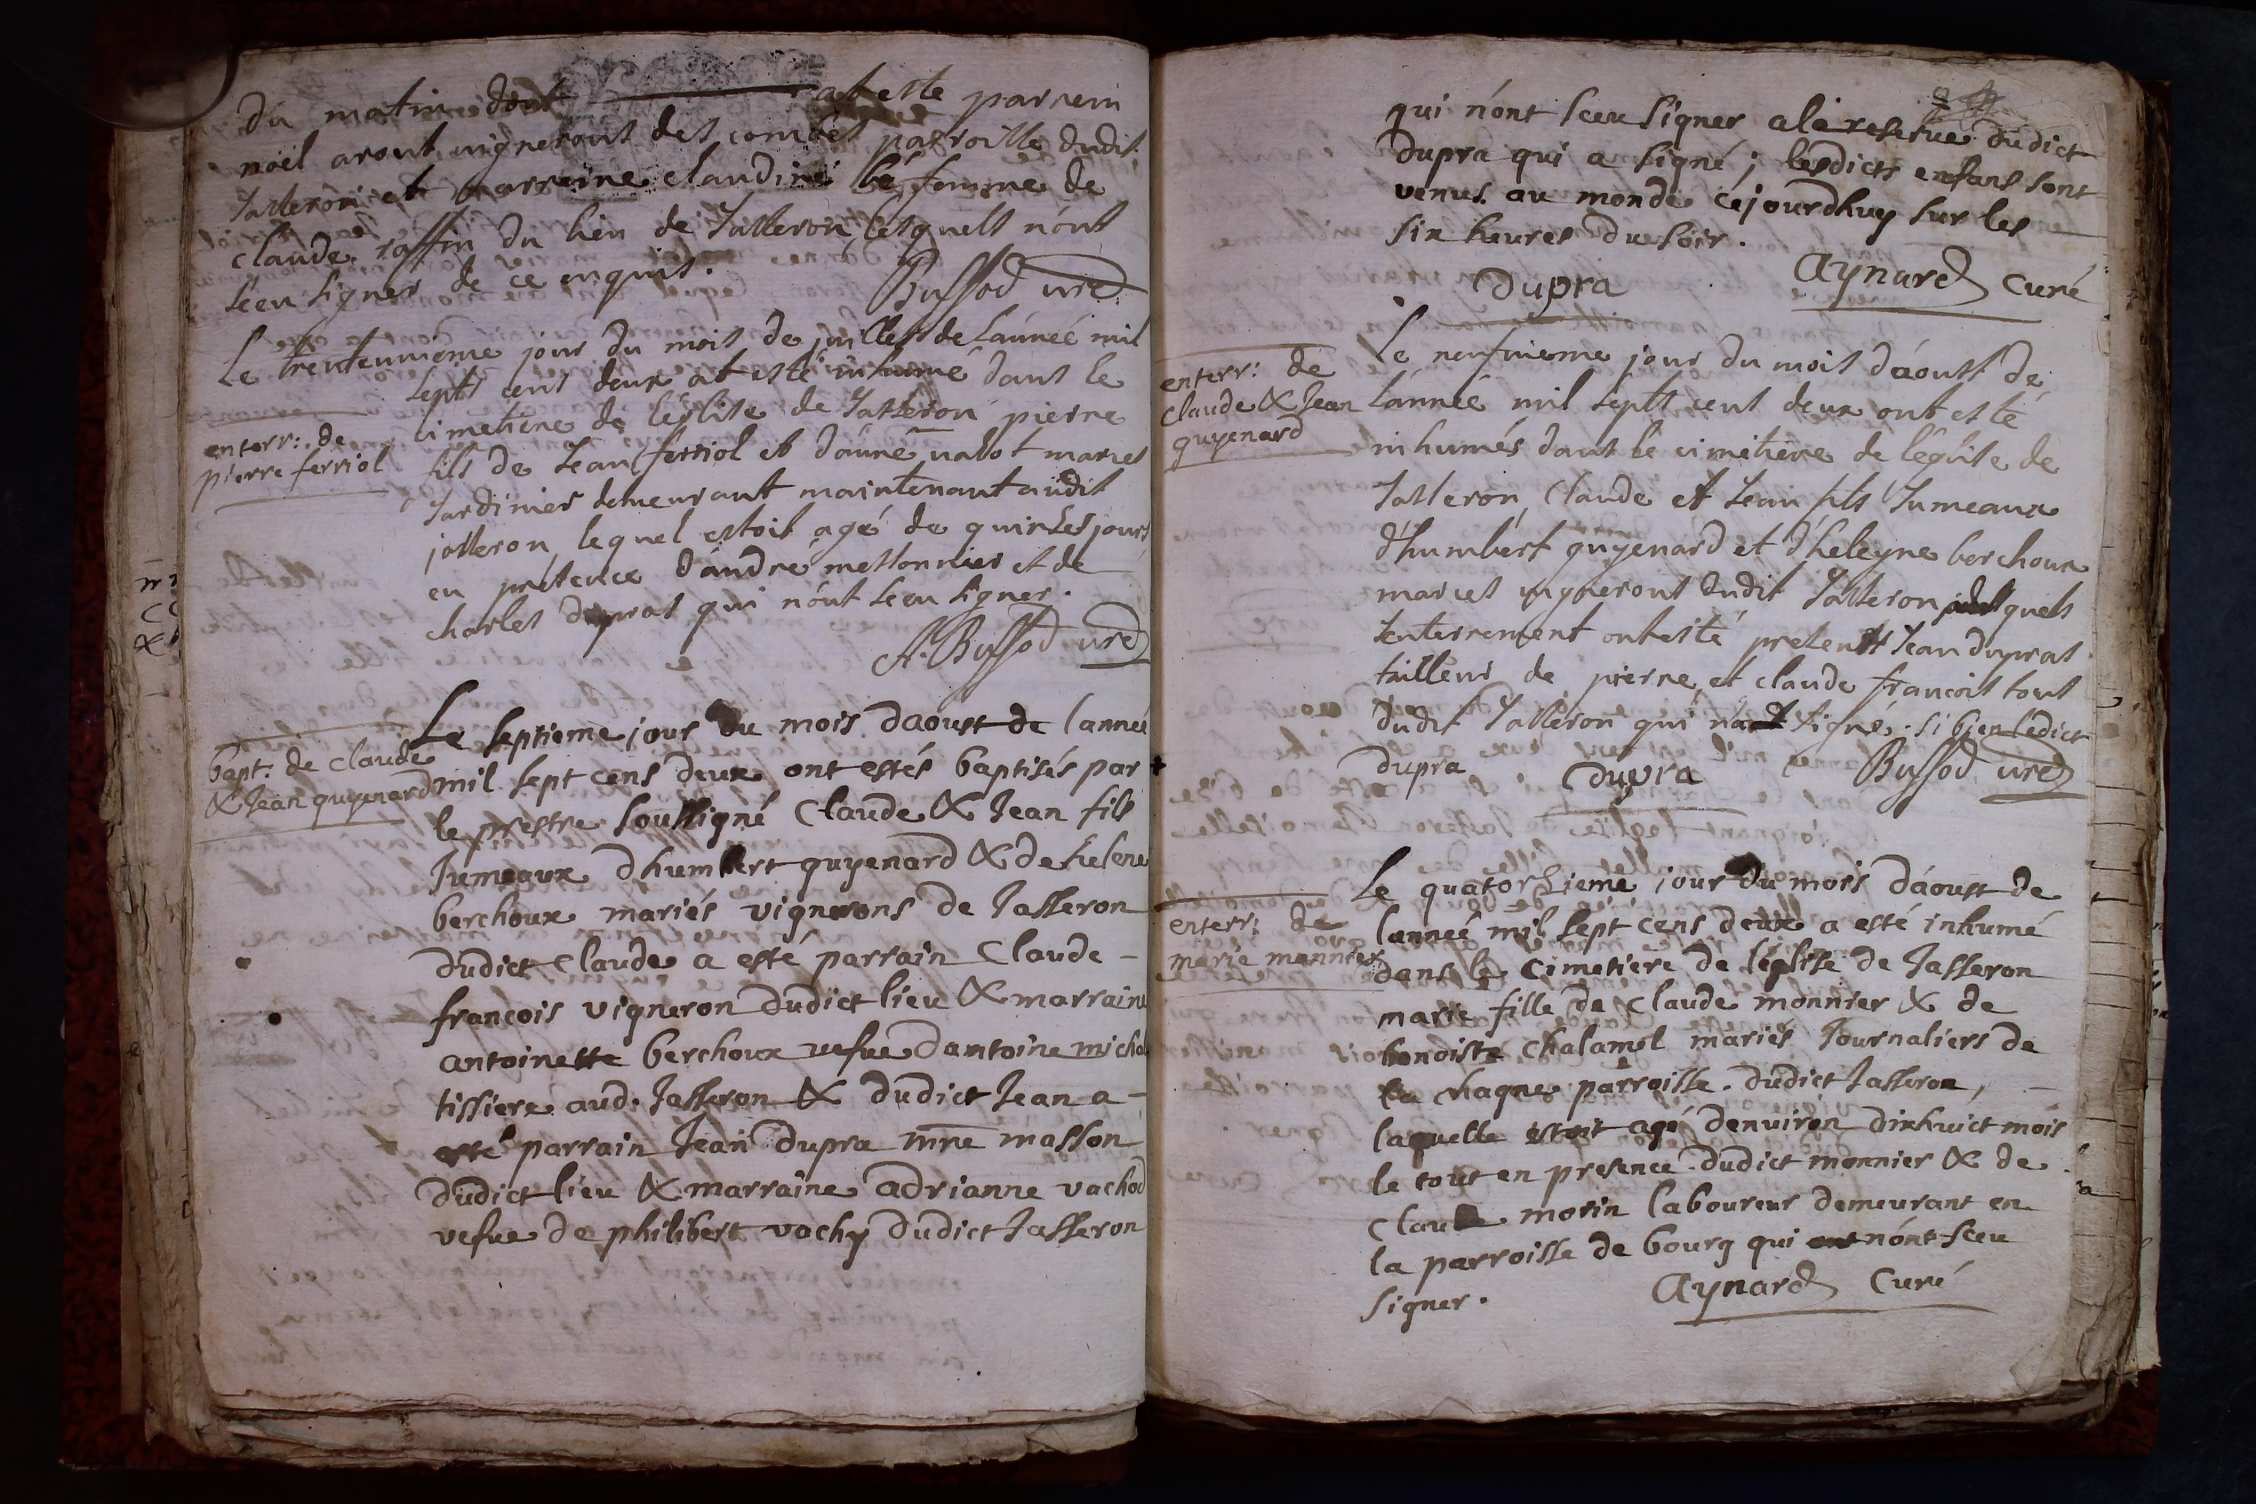 du matin dont at este parrein
noel arout vigneront des combes parroisse dudit
Jasseron et marreine claudine bé femme de
claude raffin du lieu de Jasseron lesquels n'ont
sceu signer de ce enquis.
Bussod vire
Le trenteunieme jour du mois de juillet de l'année mil
septs cens deux at esté inhumé dans le
cimetiere de l'eglise de Jasseron pierre
enterr: de
pierre ferriol
fils de Jean ferriol et d'anne nabot maries
Jardinier demeurant maintenant audit
josseron, lequel estoit agé de quinzes jours
en présence d'andré messonnier et de
charles duprat qui n'ont sceu signer.
A. Bussod vire
bapt: de claude
& Jean guyenard
Le septieme jour du mois daoust de lannée
mil sept cens deux ont estés baptisés par
le prestre soussigné Claude & Jean fils
Jumeaux dhumbert guyenard & de helene
berchoux mariés vignerons de Jasseron
dudict Claude a esté parrain Claude -
françois vigneron dudict lieu & marraine
antoinette berchoux vefue dantoine micha
tissiere aud. Jasseron & dudict Jean a -
esté parrain Jean dupra mre masson
dudict lieu & marraine adrianne vachod
vefue de philibert vachy dudict Jasseron
qui n'ont sceu signer a la reserue dudict
dupra qui a signé; lesdicts enfans sont
venus au monde cejourdhuy sur les
six heures du soir.
dupra Aynard Curé
enterr: de
claude & Jean
guyenard
Le neufvieme jour du mois d'aoust de
l'année mil septs cens deux ont esté
inhumés dans le cimetiere de l'eglise de
Jasseron, Claude et Jean fils Jumeaux
d'humbert guyenard et d'heleyne berchoux
maries vigneront dudit Jasseron, auxquels
Jenterrement ont esté presents Jean duprat
tailleur de pierre, et claude françois tous
dudit Jasseron qui n'a signé; si bien ledict
dupra dupra Bussod vire
enterr: de
marie monnier
Le quatorzieme jour du mois d'aoust de
lannée mil sept cens deux a esté inhumé
dans le cimetiere de léglise de Jasseron
marie fille de claude monnier & de
benoiste chalamel mariés Journaliers de
la chagne parroisse dudict Jasseron,
laquelle estoit agé denviron dixhuict mois
le tout en presence dudict monnier & de
Claude morin laboureur demeurant en
la parroisse de bourg qui n'ont sceu
signer. Aynard Curé